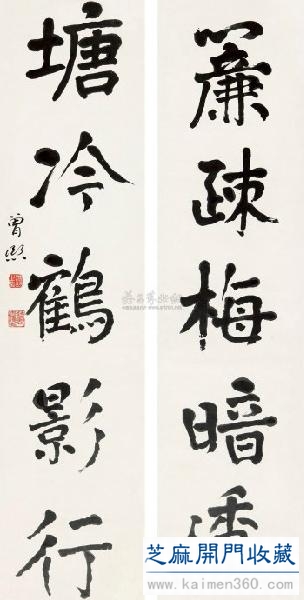 簾疎梅暗
塘冷鶴影行
曾熙
芝麻開門收藏
www.kaimen360.com